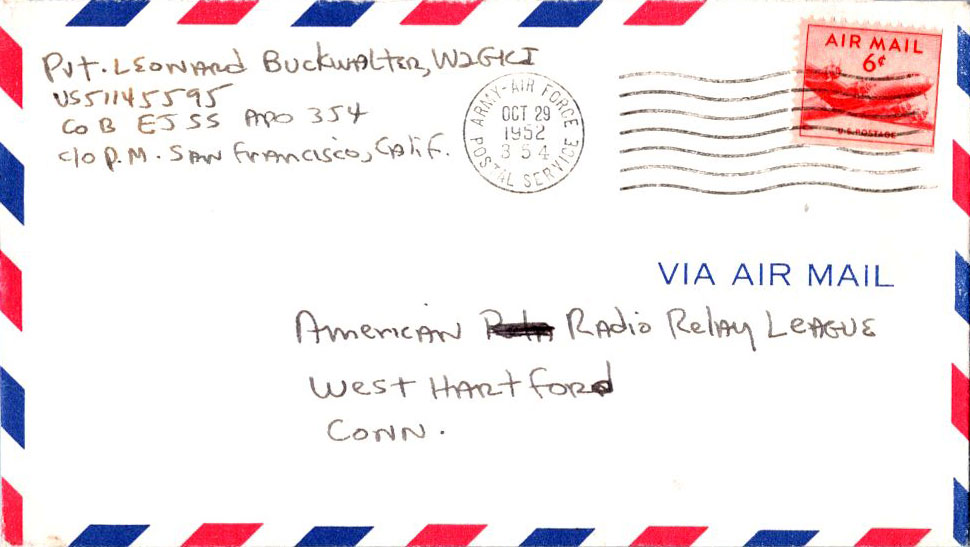 Pvt. Leonard Buckwalter, W2GKI
US51145595
Co B EJSS APO 354
c/o P.M. San Francisco, Calif.
ARMY-AIR FORCE
OCT 29
1952
354
POSTAL SERVICE
AIR MAIL
6¢
U.S. POSTAGE
VIA AIR MAIL
American Radio Relay League
West Hartford
Conn.